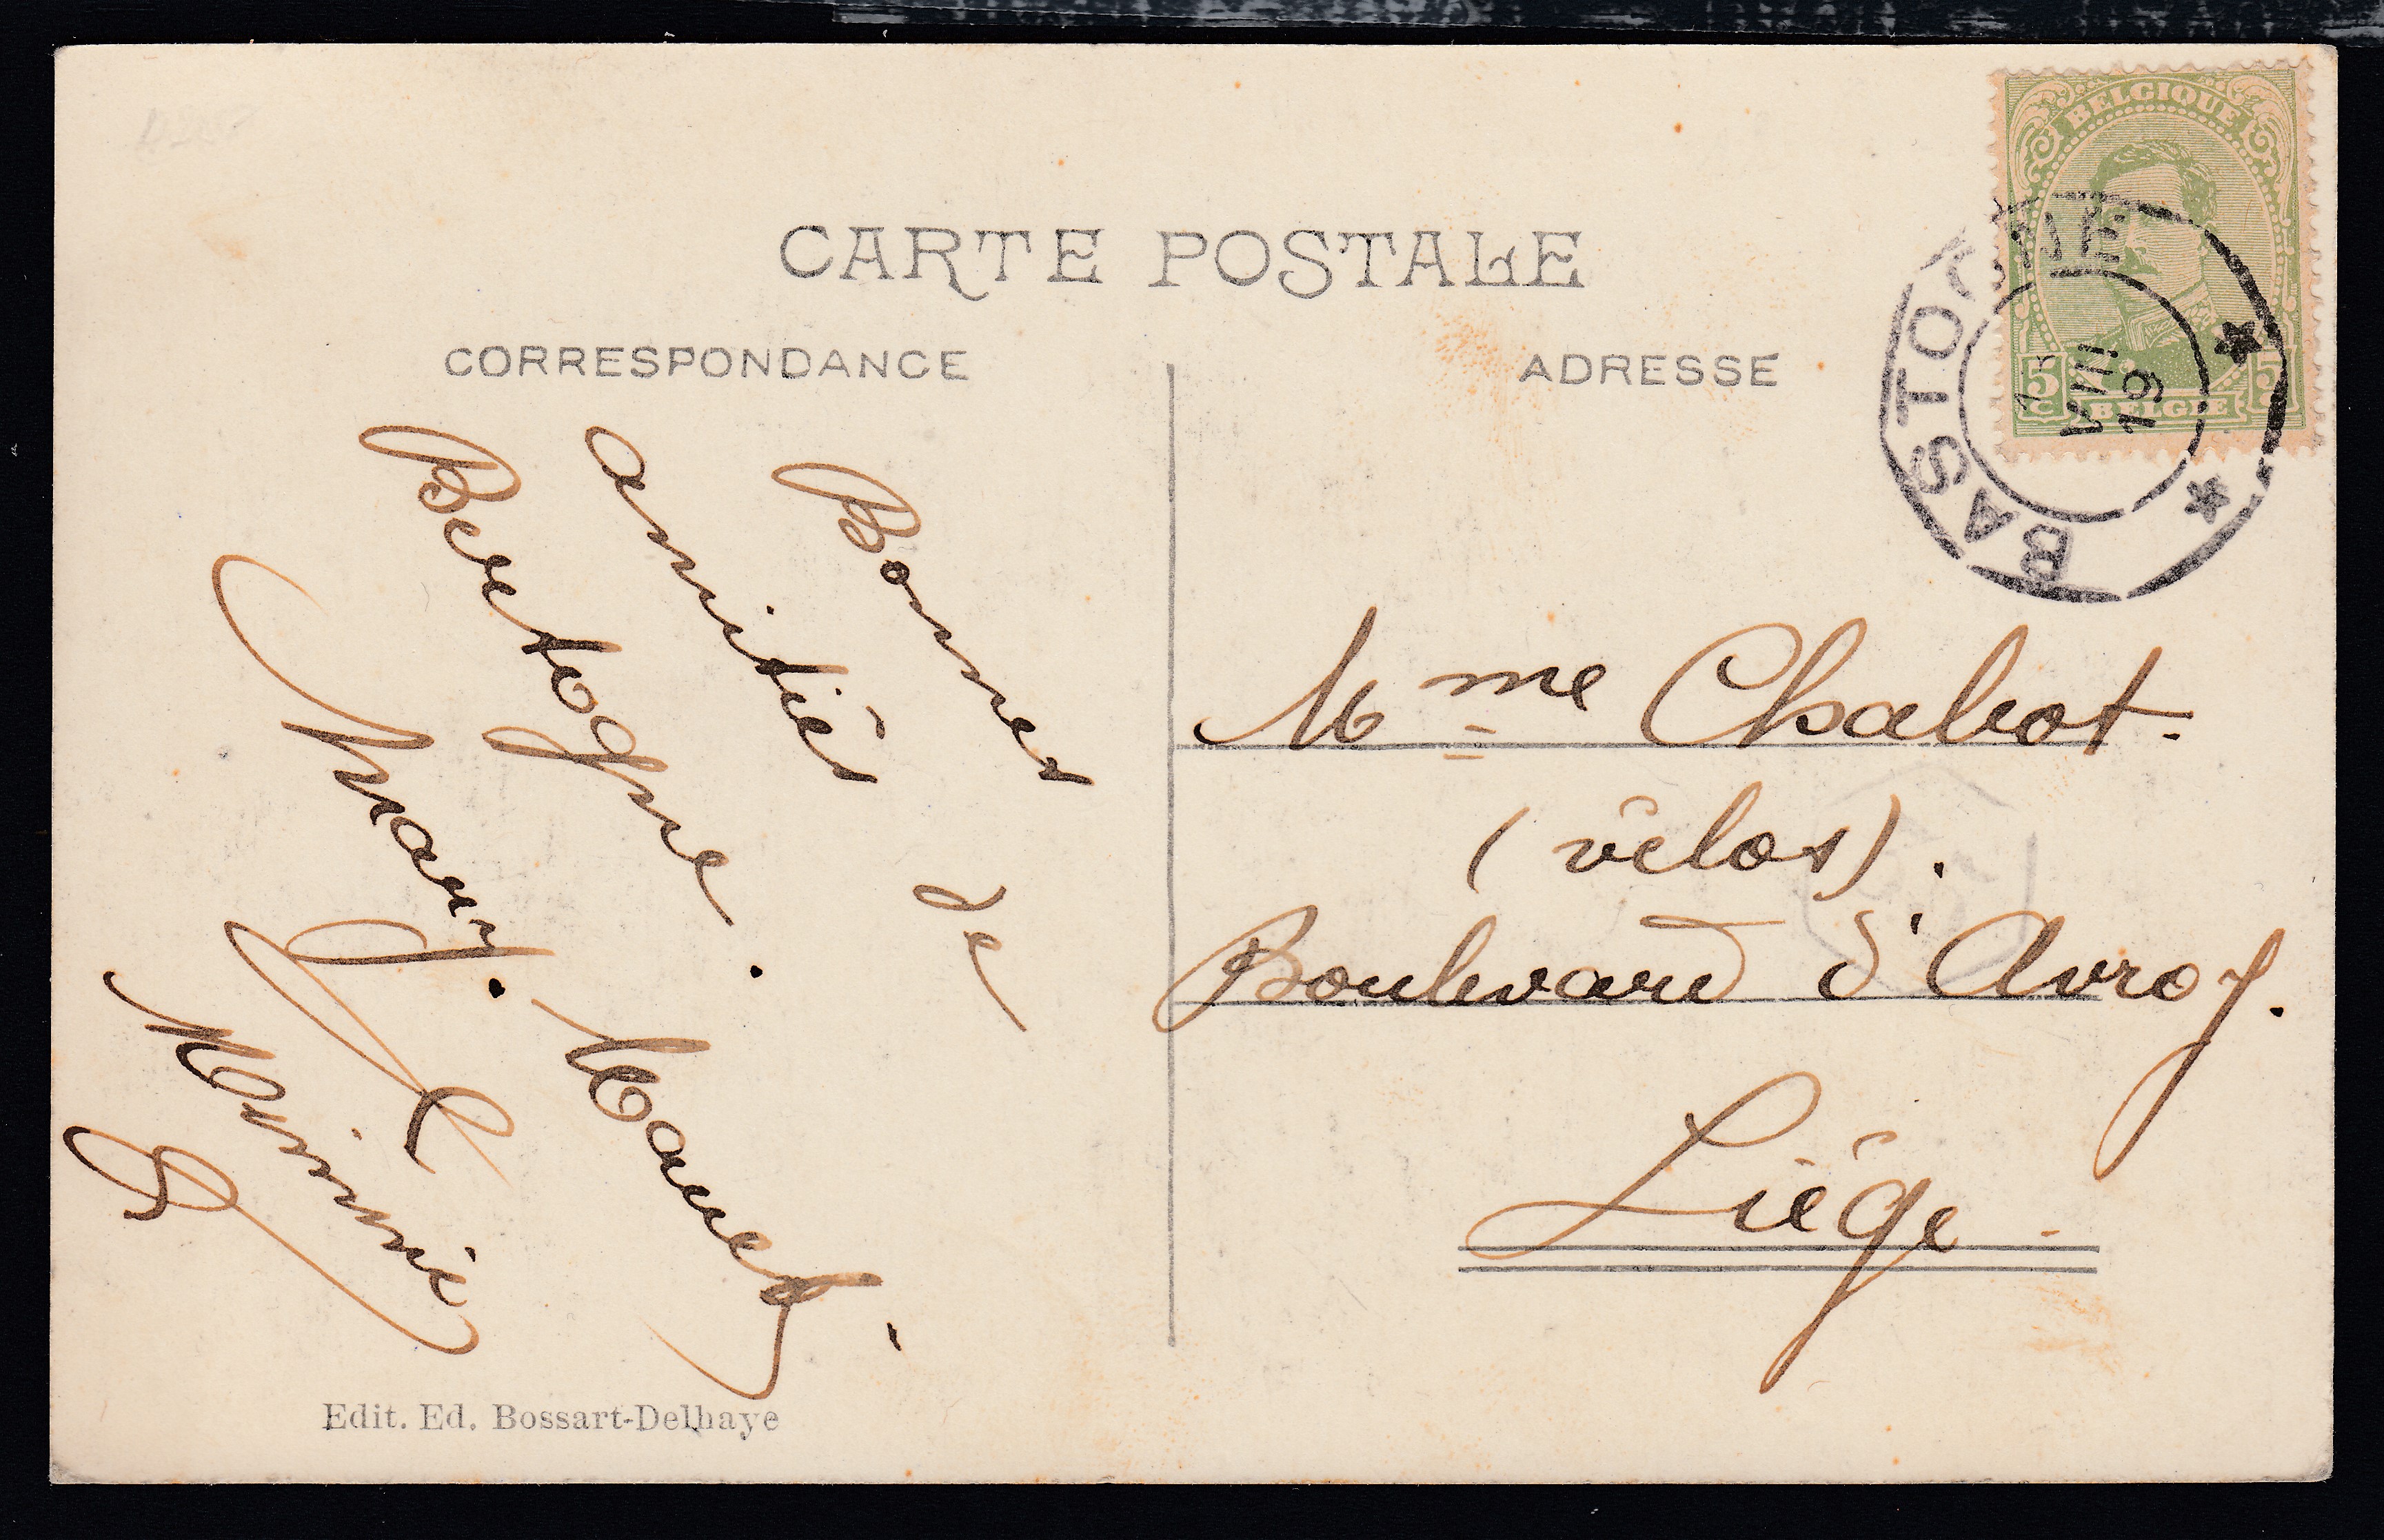 CARTE POSTALE
CORRESPONDANCE
ADRESSE
BELGIQUE
5 C
BELGIË
5 C
BASTOGNE
VIII
19
Bonnes
amitiés de
Bertogne.
Mary. Maneth
Mimie
Mme Chabot.
(vélos).
Boulevard d'Avroy.
Liége.
Edit. Ed. Bossart-Delhaye